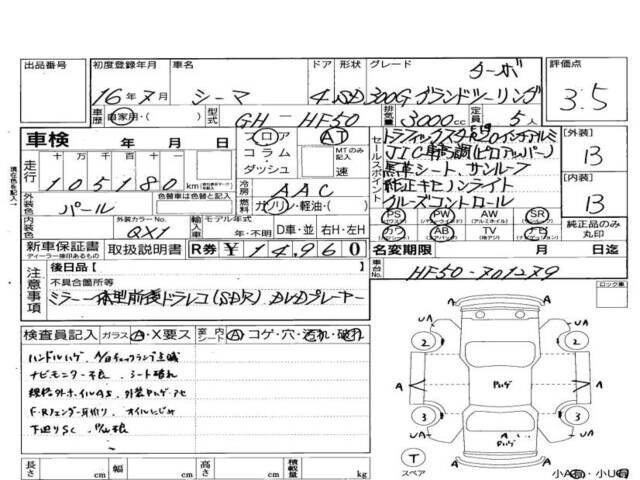 出品番号 初度登録年月 車名 ドア 形状 グレード 評価点
16年7月 シーマ 4 SD 300G グランドツーリング ターボ 3.5
車歴 自家用・( ) 型式 GH-HF50 排気量 3000cc 定員 5人
車検 年 月 日
フロア AT
コラム・ MTのみ記入
ダッシュ 速
セールスポイント
JIC車高調(ピロアッパー)
黒革シート、サンルーフ
純正キセノンライト
クルーズコントロール
[外装] B
[内装] B
走行 十 万 千 百 十 一
105180 km
冷房 AAC
燃料 ガソリン・軽油・( )
外装色 パール 色替車は色替と記入
内装色 外装カラーNo. QX1
輸入車 モデル年式 年・不明 D車・並 右H・左H
PS PW AW SR
カワ AB TV ナビ
純正品のみ丸印
新車保証書 取扱説明書 R券 ¥14,960
ディーラー捺印あるもの
名変期限 月 日迄
車台No. HF50-701279
注意事項 後日品[ ]
不具合箇所等
ミラー一体型前後ドラレコ(SDR) DVDプレーヤー
ロック車
検査員記入 ガラス A・X要ス 室内シート A コゲ・穴・汚れ・破れ
ハンドルハゲ、A/Bチェックランプ点滅
ナビモニター不良、シート破れ
規格外ホイルAS、外装
F・Rフェンダー爪折り、オイルにじみ
下廻りSC
UA A UA
2 2
A A
3 3
UA A UA
T スペア
小A有・小U有
長さ cm 幅 cm 高さ cm 積載量 kg